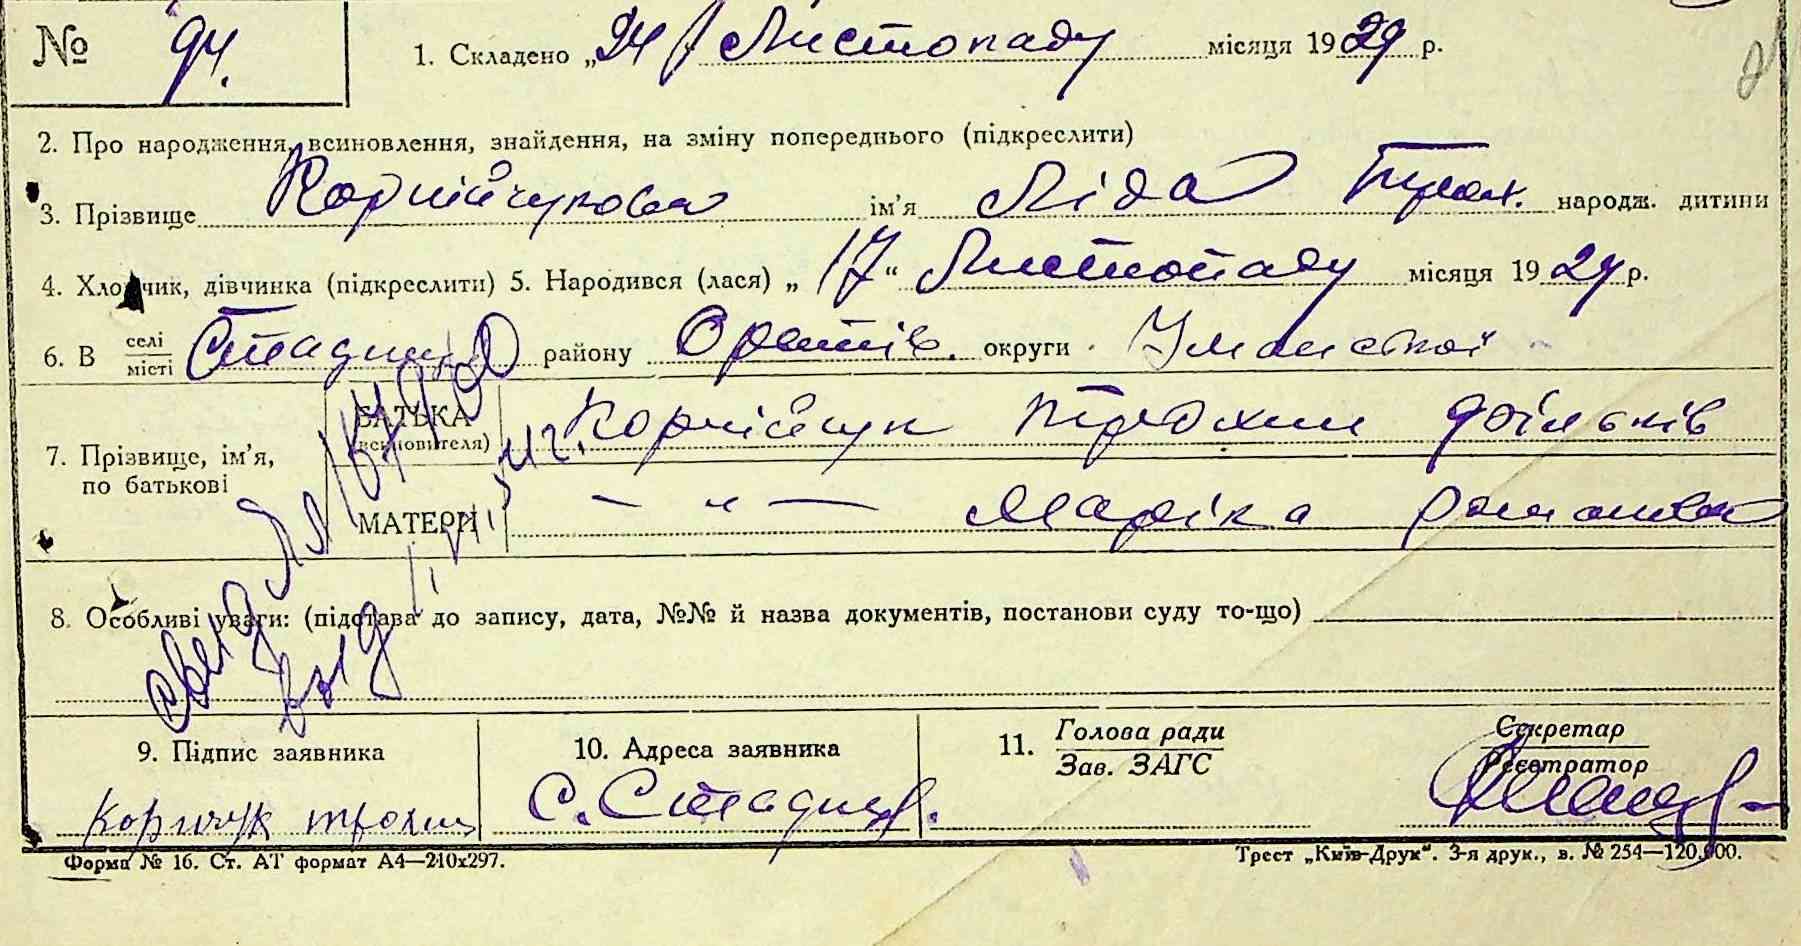 № 94. 1. Складено „24" Листопаду місяця 1929 р.
2. Про народження, всиновлення, знайдення, на зміну попереднього (підкреслити)
3. Прізвище Корнійчукова ім'я Ліда Трох. народж. дитини
4. Хлопчик, дівчинка (підкреслити) 5. Народився (лася) „17" Листопаду місяця 1929 р.
6. В селі/місті Стадниця району Оратів. округи Уманської
7. Прізвище, ім'я, по батькові
БАТЬКА (всиновителя) Корнійчук Трохим
МАТЕРИ — " — Маріка Романова
8. Особливі уваги: (підстава до запису, дата, №№ й назва документів, постанови суду то-що)
9. Підпис заявника 10. Адреса заявника 11. Голова ради/Зав. ЗАГС Секретар/Реєстратор
Корнчук трохим с. Стадниця.
Форма № 16. Ст. АТ формат А4—210х297. Трест „Київ-Друк". 3-я друк., в. № 254—120,000.